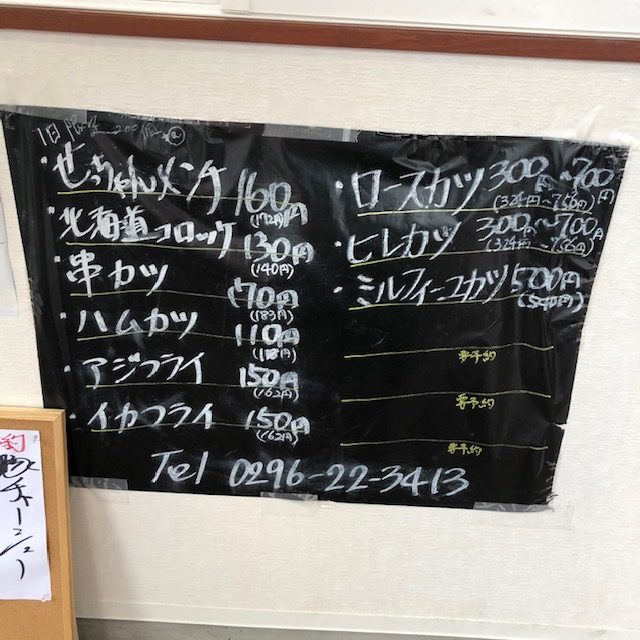 ・せっちゃんメンチ 160円
(172円)
・北海道コロッケ 130円
(140円)
・串カツ 170円
(183円)
・ハムカツ 110円
・アジフライ 150円
(162円)
・イカフライ 150円
(162円)
・ロースカツ 300円〜700円
(324円〜756円)
・ヒレカツ 300円〜700円
(324円〜756円)
・ミルフィーユカツ 500円
(540円)
要予約
要予約
要予約
Tel 0296-22-3413
約
チャーシュー